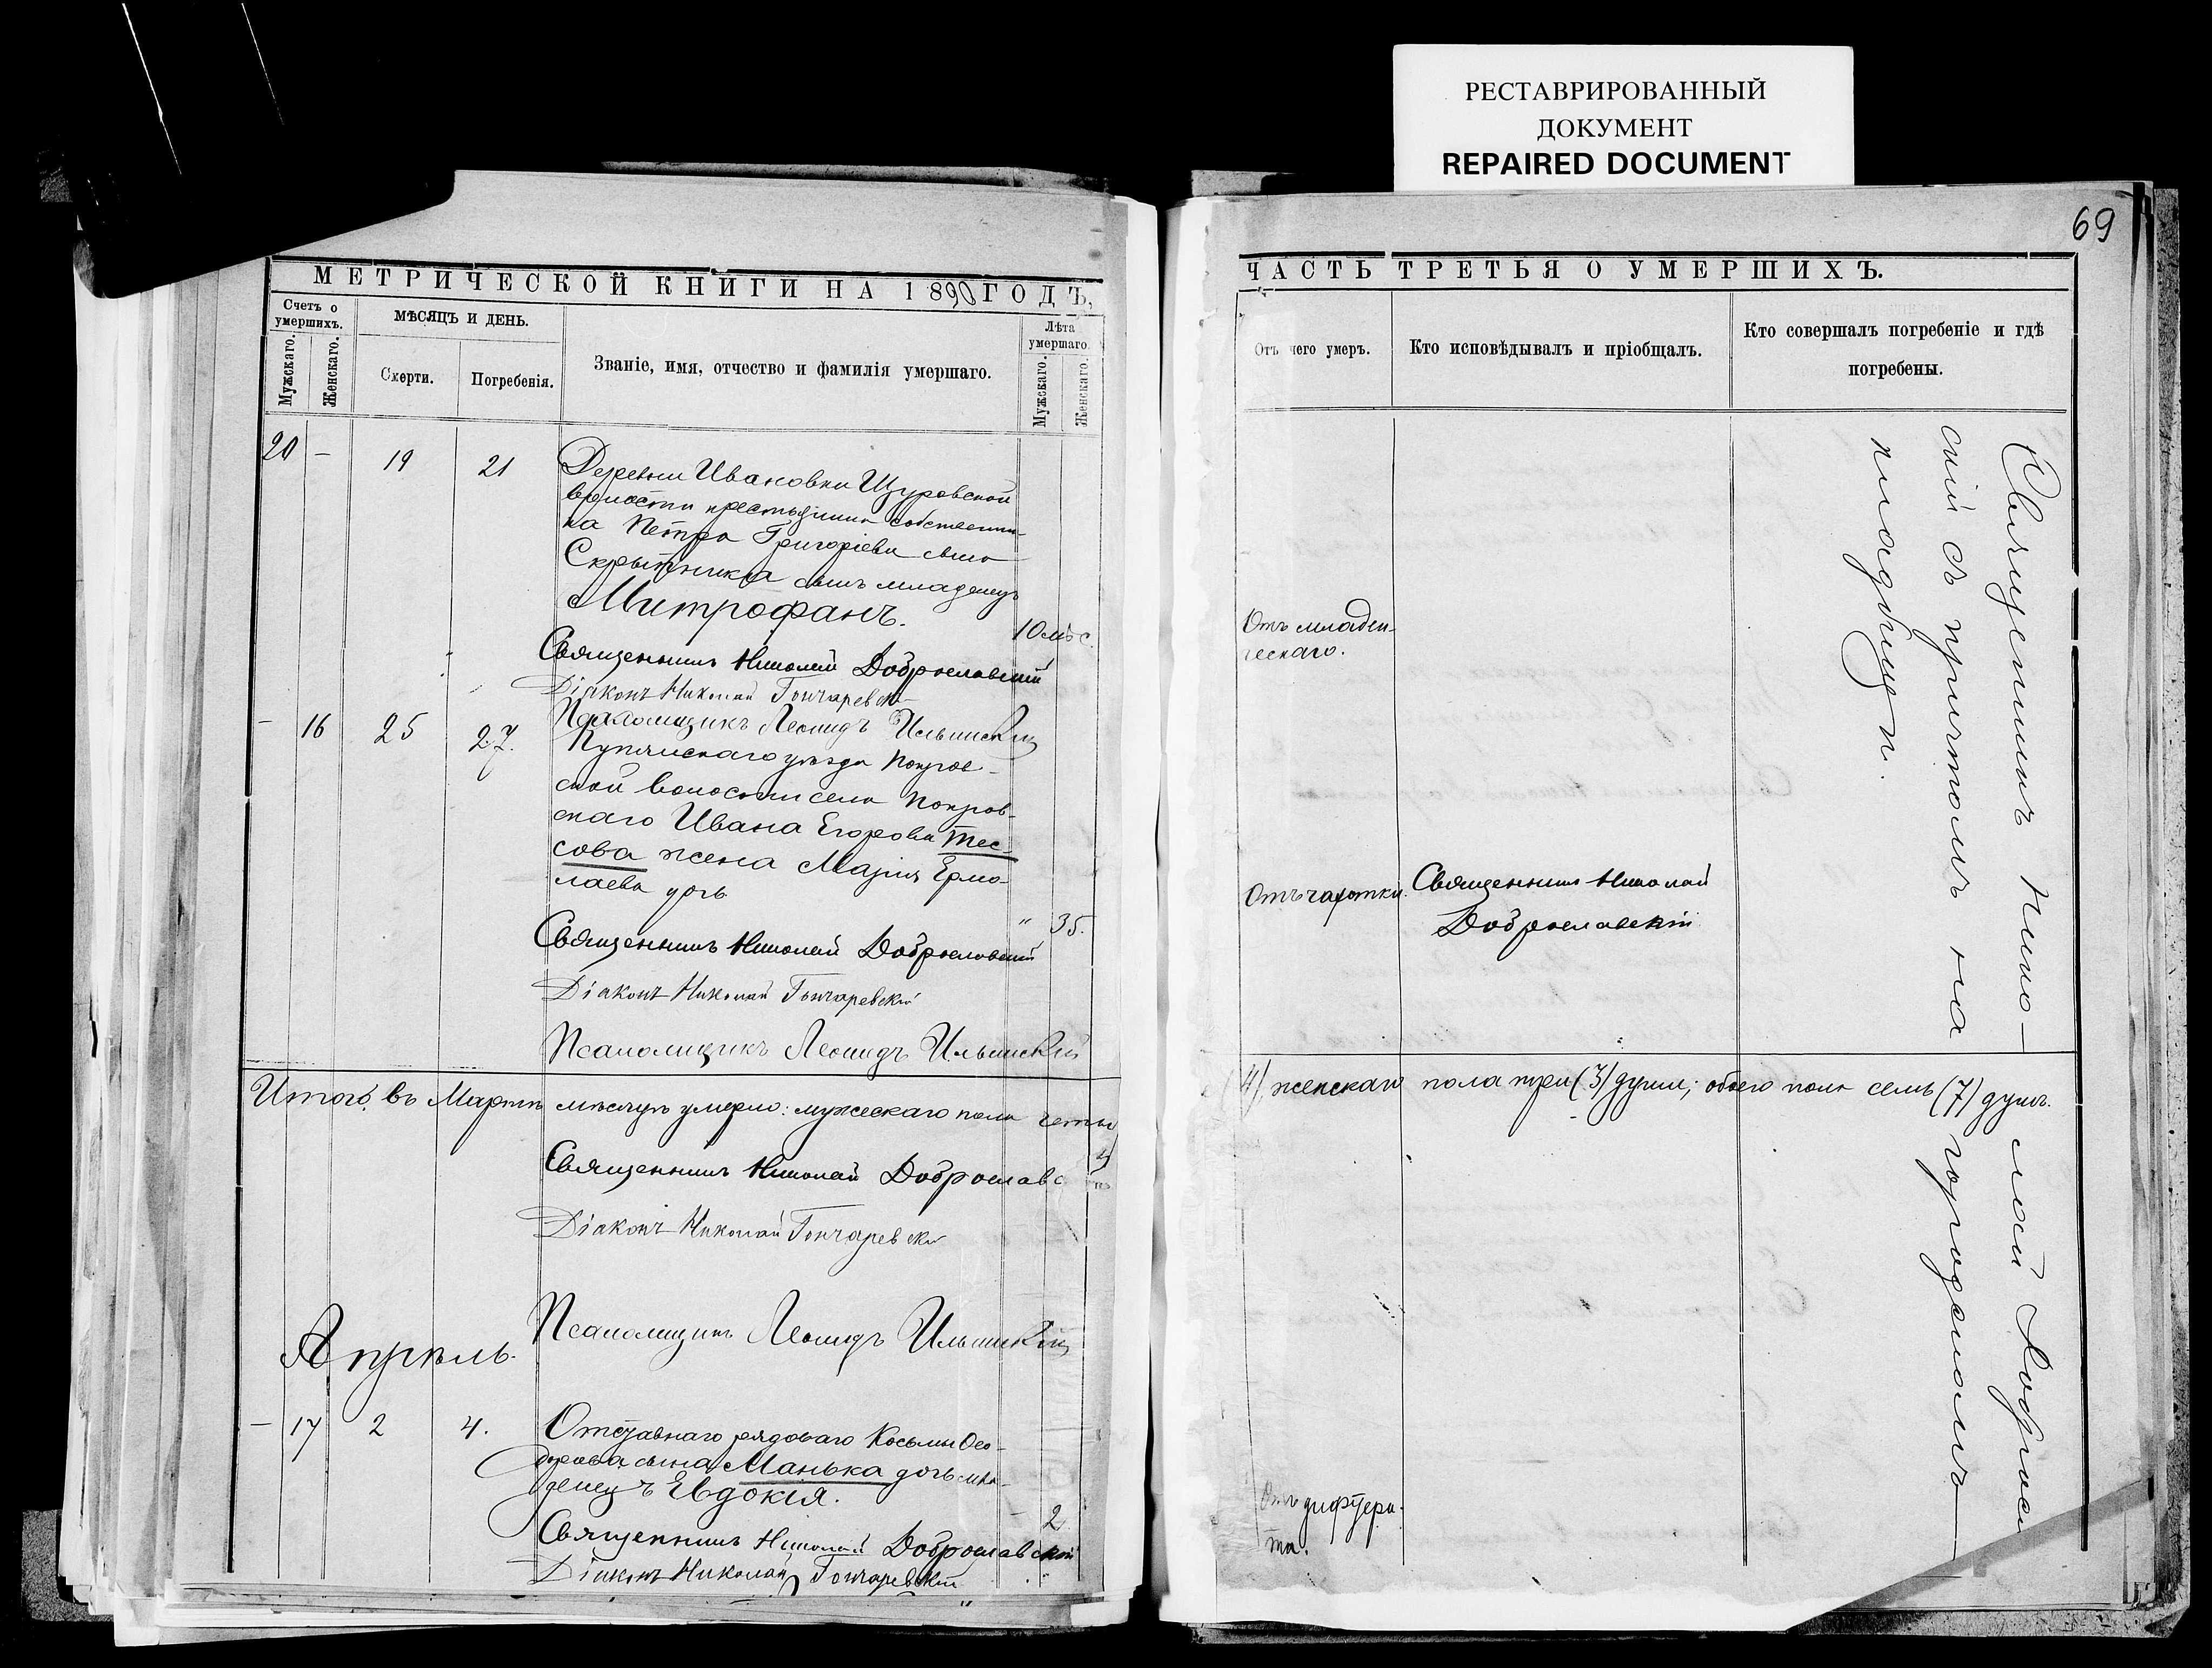 РЕСТАВРИРОВАННЫЙ
ДОКУМЕНТ
REPAIRED DOCUMENT
МЕТРИЧЕСКОЙ КНИГИ НА 1890 ГОДЪ,
Счетъ о умершихъ.
Мужскаго.
Женскаго.
МѢСЯЦЪ И ДЕНЬ.
Смерти.
Погребенія.
Званіе, имя, отчество и фамилія умершаго.
Лѣта умершаго.
Мужскаго.
Женскаго.
20 – 19 21
Деревни Ивановки Щуровской
волости крестьянина собственни-
ка Петра Григоріева сына
Скрыпника сынъ младенецъ
Митрофанъ.
10 мѣс.
Священникъ Николай Доброславскій
Діаконъ Николай Гончаревскій
Псаломщикъ Леонидъ Ильинскій
– 16 25 27.
Купянскаго уѣзда Покров-
ской волости села Покров-
скаго Ивана Егорова Тес-
сова жена Марія Ермо-
лаева дочь
" 35.
Священникъ Николай Доброславскій
Діаконъ Николай Гончаревскій
Псаломщикъ Леонидъ Ильинскій
Итого въ Мартѣ мѣсяцѣ умерло: мужескаго пола четы
Священникъ Николай Доброславс
Діаконъ Николай Гончаревскій
Псаломщикъ Леонидъ Ильинскій
Апрѣль.
– 17 2 4.
Отставнаго рядоваго Косьмы Ѳео-
дорова сына Манька дочь мла-
денецъ Евдокія.
– 2
Священникъ Николай Доброславскій
Діаконъ Николай Гончаревскій
69
ЧАСТЬ ТРЕТЬЯ О УМЕРШИХЪ.
Отъ чего умеръ.
Кто исповѣдывалъ и пріобщалъ.
Кто совершалъ погребеніе и гдѣ
погребены.
Отъ младен-
ческаго.
Отъ чахотки.
Священникъ Николай
Доброславскій
4) женскаго пола три (3) души; обоего пола семь (7) душъ.
Отъ дифтери-
та.
Священникъ Нико-
лай Доброслав
скій съ причтомъ на
приходскомъ
кладбищѣ.